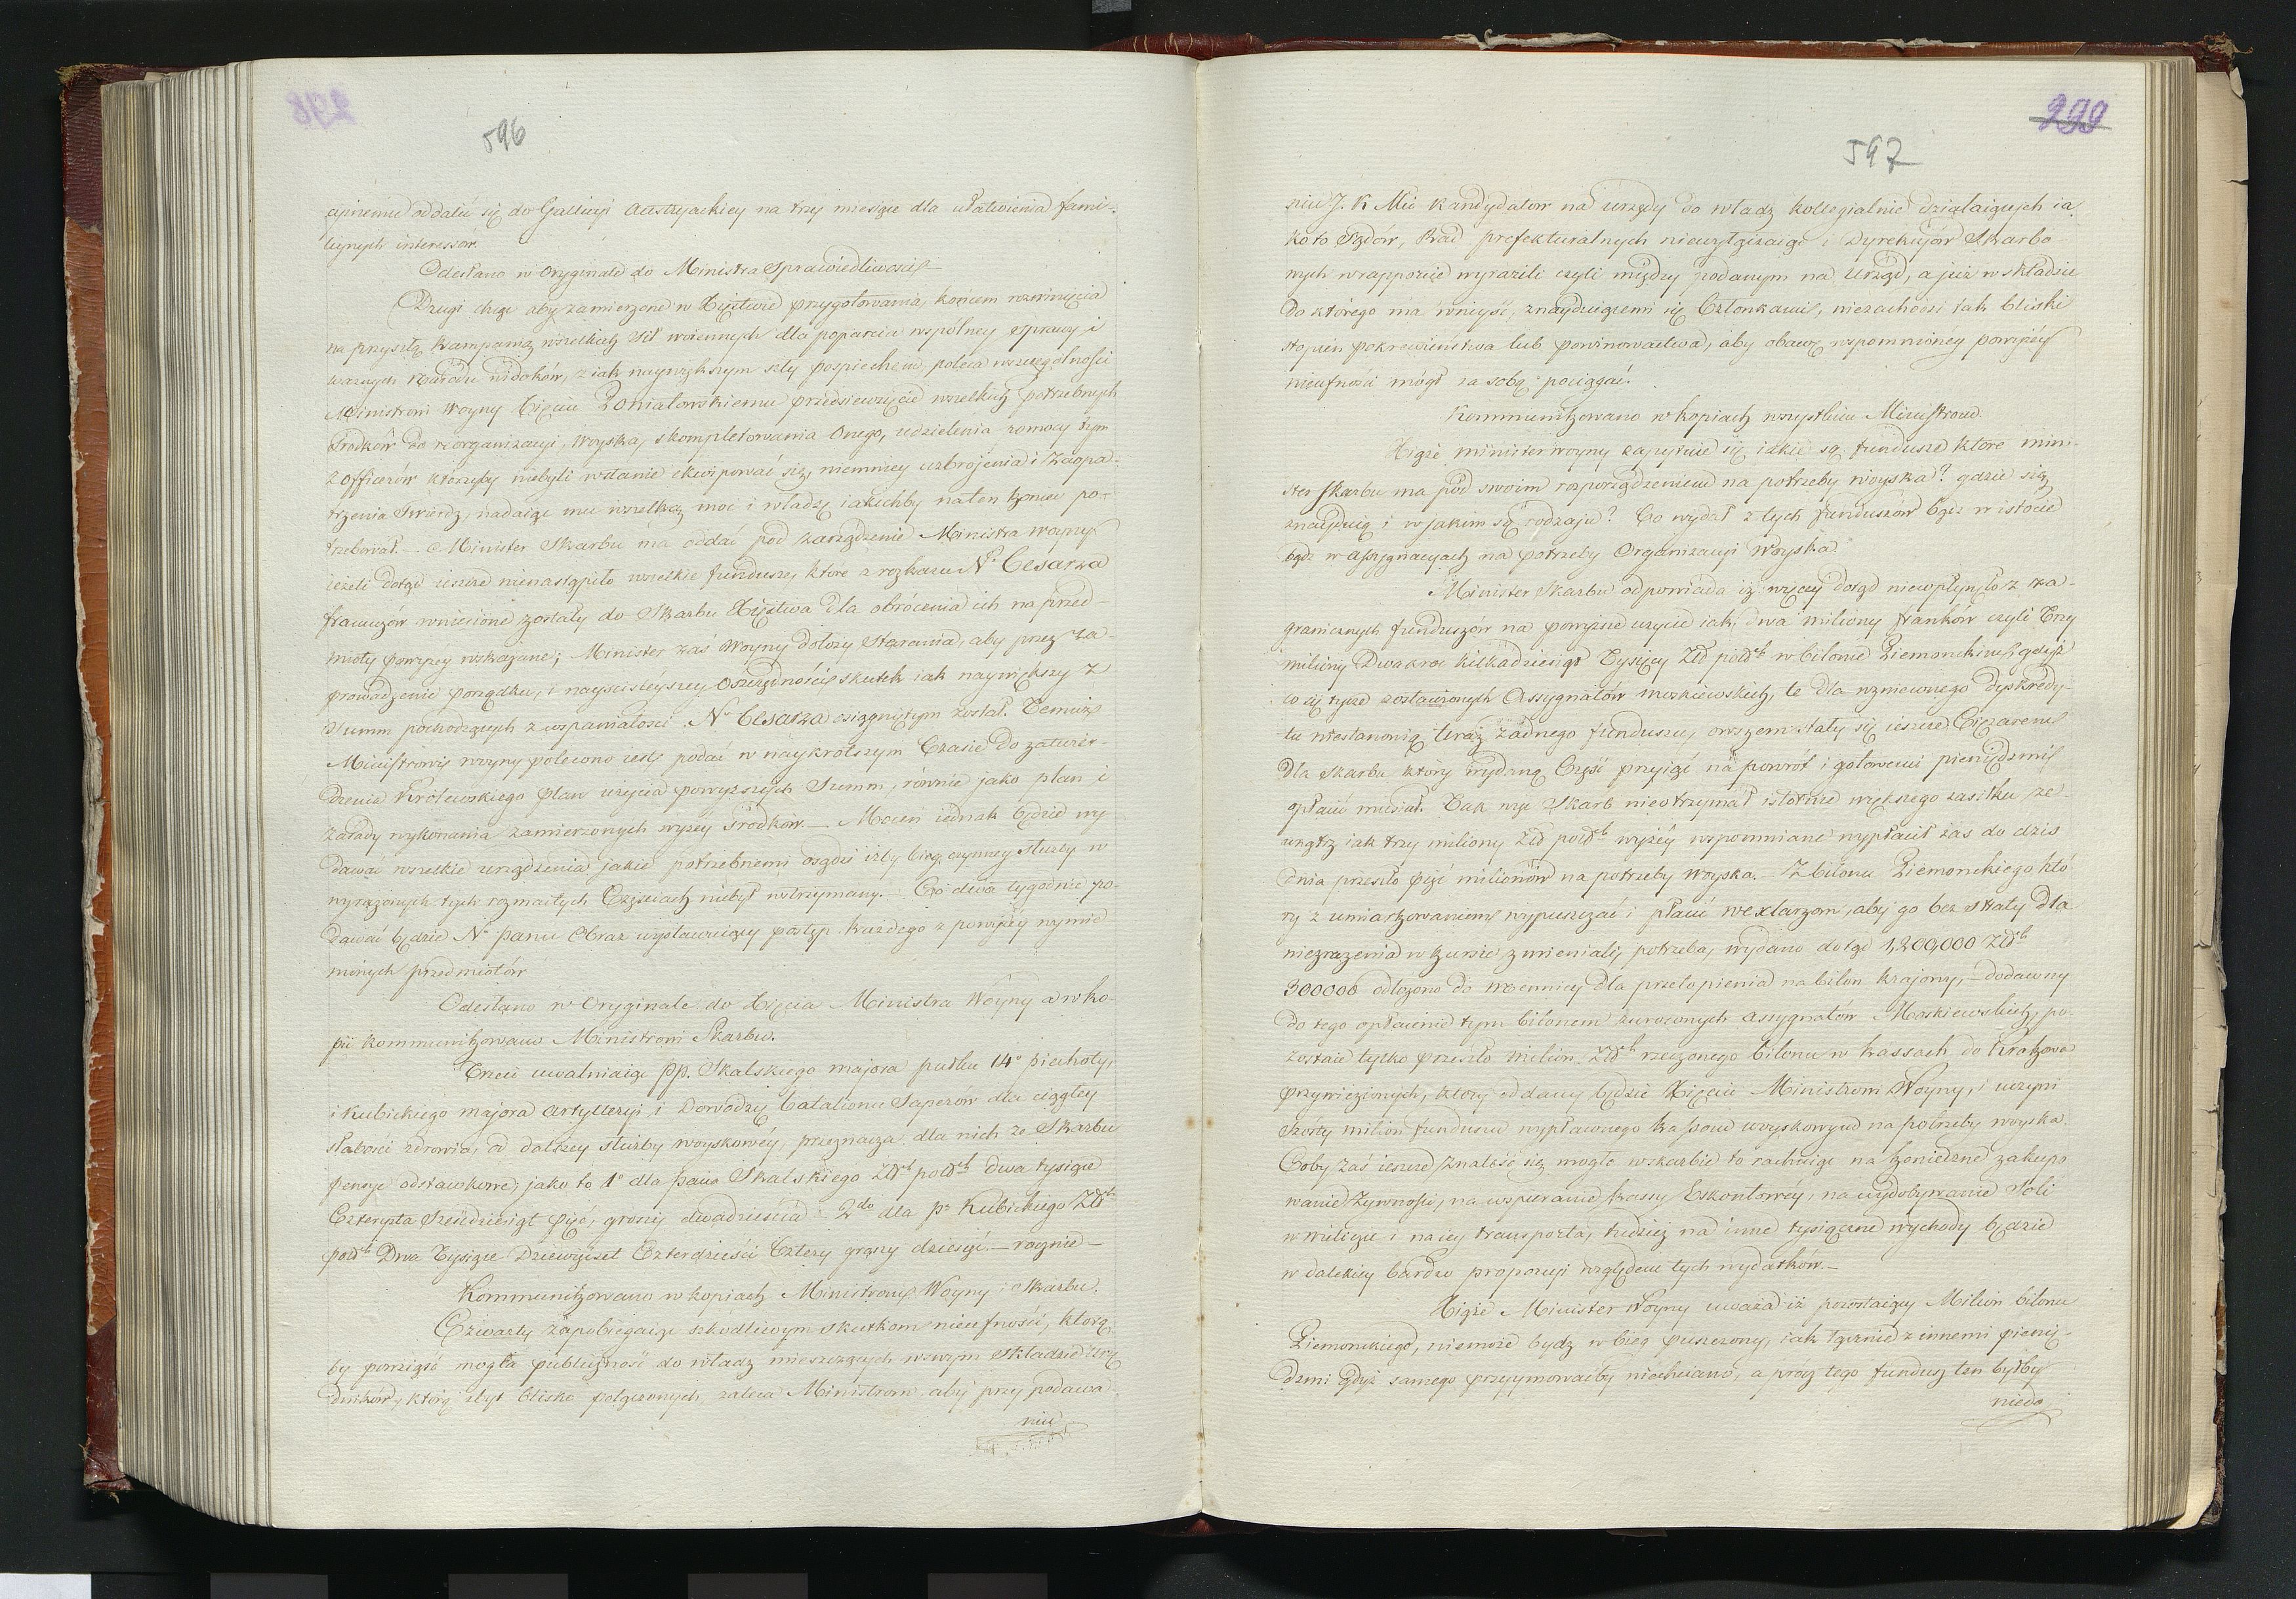 596
cyinemu oddalić się do Gallicyi Austryackiey na trzy miesiące dla ułatwienia fami-
liynych interessów.
Odesłano w Oryginale do Ministra Sprawiedliwości
Drugi chcąc aby zamierzone w Xięstwie przygotowania, końcem rozwinięcia
na przyszłą kampanią wszelkich sił woiennych dla poparcia wspólney sprawy i
ważnych Narodu widoków, z iak naywiększym szły pospiechem poleca wszczególności
Ministrowi Woyny Xięciu Poniatowskiemu przedsiewzięcie wszelkich potrzebnych
Srodków do reorganizacyi, Woyska, skompletowania onego, udzielenia pomocy tym
z Officerów którzyby niebyli wstanie ekwipować się, niemniey uzbrojenia i zaopa-
trzenia Twierdz, nadaiąc mu wszelką moc i władzę iakichby na ten koniec po-
trzebował. — Minister Skarbu ma oddać pod zarządzenie Ministra Woyny
ieżeli dotąd ieszcze nienastąpiło wszelkie fundusze, które z rozkazu N° Cesarza
francuzów wniesione zostały do Skarbu Xięstwa dla obrócenia ich na przed-
mioty powyżey wskazane; Minister zaś Woyny dołoży starania, aby przez za-
prowadzenie porządku, i nayściśleyszey oszczędności skutek iak naywiększy z
Summ pochodzących z wspaniałości N° Cesarza osiągniętym został. Temuż
Ministrowi woyny polecono iest podać w naykrótszym Czasie do zatwier-
dzenia Królewskiego plan użycia powyższych Summ, równie jako plan i
zasady wykonania zamierzonych wyżey srodków. — Mocen iednak będzie wy-
dawać wszelkie urządzenia jakie potrzebnemi osądzi izby bieg czynney służby w
wyrażonych tych rozmaitych Częściach niebył wstrzymany. — Co dwa tygodnie po-
dawać będzie N° Panu Obraz wystawuiący postęp każdego z powyżey wymie-
nionych przedmiotów
Odesłano w Oryginale do Xięcia Ministra Woyny a w ko-
pii kommunikowano Ministrowi Skarbu.
Trzeci uwalniaiąc PP. Skalskiego majora pułku 14° piechoty,
i Kubickiego majora Artylleryi i Dowodzcy batalionu Saperów dla ciągłey
słabości zdrowia, od dalszey służby woyskowey, przeznacza dla nich ze Skarbu
pensye odstawkowe, jako to 1° dla pana Skalskiego Złch polch dwa tysiące
Czterysta sześćdziesiąt pięć, groszy dwadzieścia 2do dla P° Kubickiego Złch
polch Dwa Tysiące Dziewięćset Czterdzieści Cztery groszy dziesięć. — rocznie —
Kommunikowano w kopiach Ministrowi Woyny i Skarbu.
Czwarty zapobiegaiąc szkodliwym skutkom nieufności, którą
by powziąść mogła publiczność do władz mieszczących w swym składzie Urzę-
dników, którzy zbyt blisko połączonych, zaleca Ministrom aby przy podawa-
niu
299
597
niu J. K Mci kandydatow na urzędy do władz kollegialnie działaiących ia-
ko to Sądów, Rad prefekturalnych niewyłączaiąc i Dyrekcyów Skarbo-
wych w rapporcie wyrazili czyli między podanym na Urząd, a już w składzie
do którego ma wniyść, znayduiącemi się Członkami, niezachodzi tak bliski
stopień pokrewieństwa lub powinowactwa, aby obawę wspomnioney powyżey
nieufności mógł za sobą pociągać.
Kommunikowano w kopiach wszystkim Ministrom.
Xiąże minister woyny zapytuie się iakie są fundusze które mini-
ster skarbu ma pod swoim rozporządzeniem na potrzeby woyska? gdzie się
znayduią i w jakim są rodzaju? Co wydał z tych funduszów bądź w istocie
bądz w assygnacyach na potrzeby Organizacyi Woyska.
Minister Skarbu odpowiada iż więcey dotąd niewpłynęło z za-
granicznych funduszów na powyższe użycie iak, dwa miliony franków czyli Trzy
miliony Dwakroć kilkadziesiąt Tysięcy Złł polch w bilonie Piemonckim gdyż
co się tycze zostawionych Assygnatów moskiewskich, te dla wzniconego dyskredy-
tu niestanowią teraz żadnego funduszu, owszem stały się ieszcze Ciężarem
dla Skarbu który wydaną Część przyiąć na powrót i gotowemi pieniędzmi
opłacić musiał. Tak więc Skarb nieotrzymał istotnie większego zasiłku ze-
wnątrz iak trzy miliony Złł polch wyżey wspomniane wypłacił zaś do dziś
dnia przeszło pięć milionów na potrzeby Woyska. — Z bilonu Piemonckiego któ-
ry z umiarkowaniem wypuszczać i płacić wexlarzom, aby go bez straty dla
niezrażenia w kursie zmieniali, potrzeba, wydano dotąd 1,200,000 Złch
300000 odłożono do Mennicy dla przetopienia na bilon krajowy, — dodawszy
do tego opłacenie tym bilonem zwróconych assygnatów Moskiewskich, po-
zostaie tylko przeszło milion Złch rzeczonego bilonu w kassach do Krakowa
przywiezionych, który oddany będzie Xięciu Ministrowi Woyny, i uczyni
szósty milion funduszu wypłaconego kassom woyskowym na potrzeby woyska.
Coby zaś ieszcze znaleść się mogło w skarbie to rachuiąc na konieczne zakupo-
wanie żywności, na wspieranie kassy Eskontowey, na wydobywanie Soli
w Wieliczce i na iey transporta, tudzież na inne tysiączne wychody będzie
w dalekiey bardzo proporcyi względem tych wydatków. —
Xiąże Minister Woyny uważa iż pozostaiący Milion bilonu
Piemonckiego, niemoże bydz w bieg puszczony, iak łącznie z innemi pienię-
dzmi gdyż samego przyymowaćby niechciano, a prócz tego fundusz ten byłby
niedo